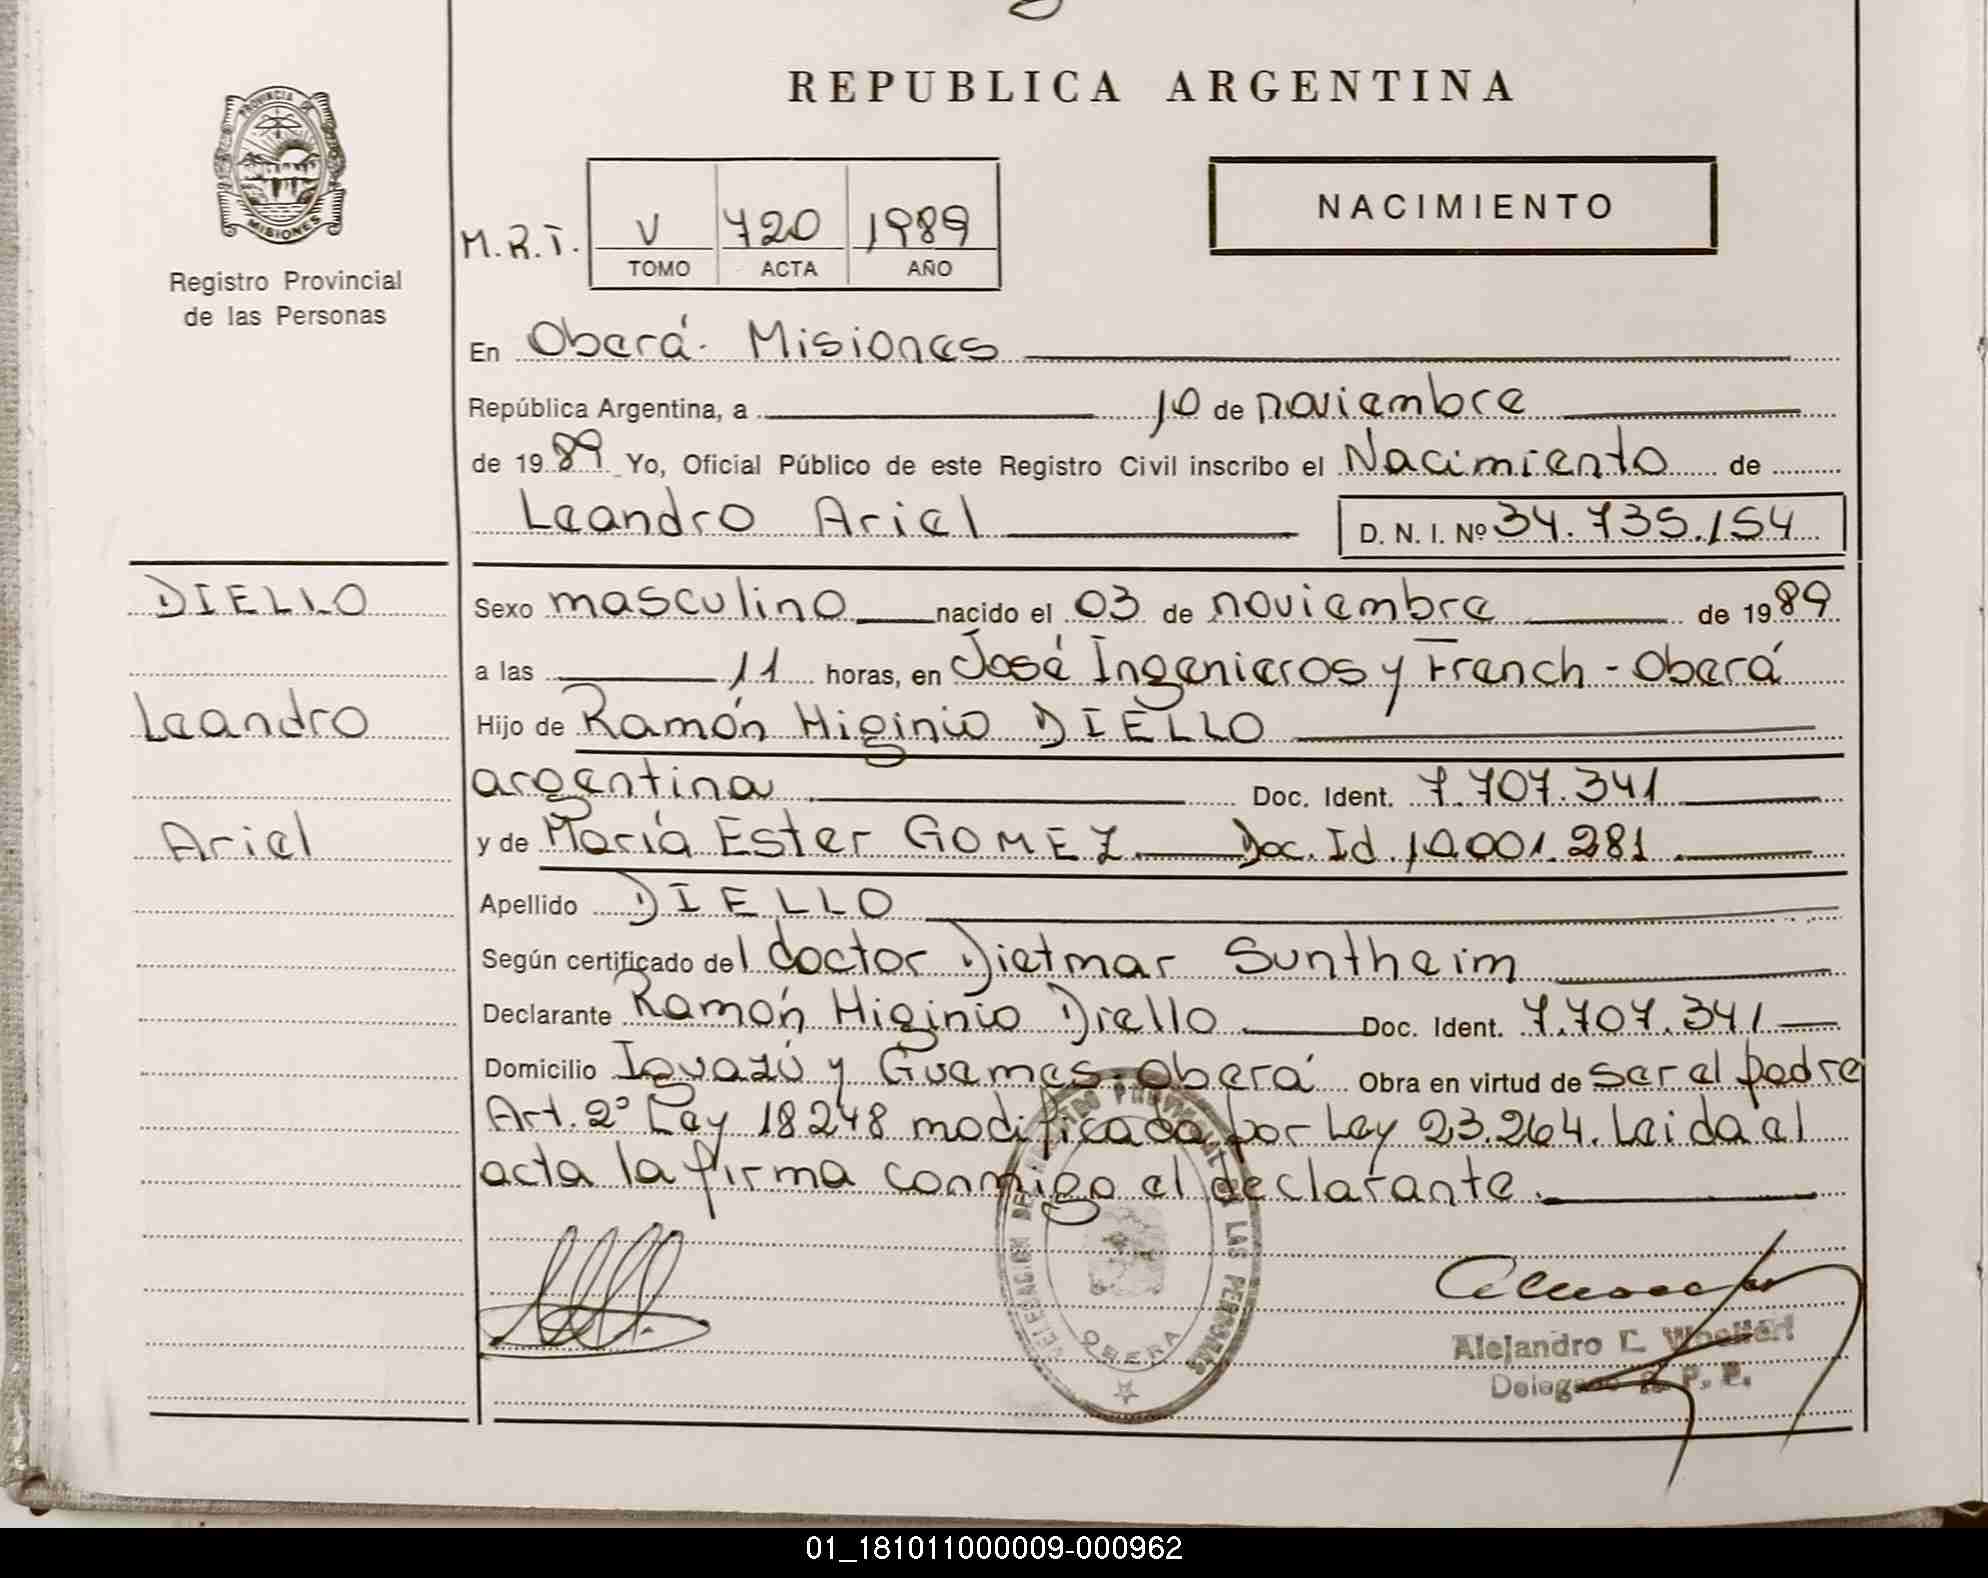 REPUBLICA ARGENTINA
PROVINCIA DE
MISIONES
Registro Provincial
de las Personas
M.R.I.
V 720 1989
TOMO ACTA AÑO
NACIMIENTO
En Oberá. Misiones
República Argentina, a 10 de noviembre
de 1989 Yo, Oficial Público de este Registro Civil inscribo el Nacimiento de
Leandro Ariel D. N. I. Nº 34.735.154
DIELLO
Leandro
Ariel
Sexo masculino nacido el 03 de noviembre de 1989
a las 11 horas, en José Ingenieros y French - Oberá
Hijo de Ramón Higinio DIELLO
argentina Doc. Ident. 7.707.341
y de María Ester GOMEZ Doc. Id. 10.001.281
Apellido DIELLO
Según certificado del doctor Dietmar Suntheim
Declarante Ramón Higinio Diello Doc. Ident. 7.707.341
Domicilio Iguazú y Guemes. Oberá Obra en virtud de ser el padre
Art. 2° Ley 18248 modificada por Ley 23.264. Leida el
acta la firma conmigo el declarante.
DELEGACION DEL REGISTRO PROVINCIAL DE LAS PERSONAS
OBERA
Alejandro E.
Delegado R. P. P.
01_181011000009-000962